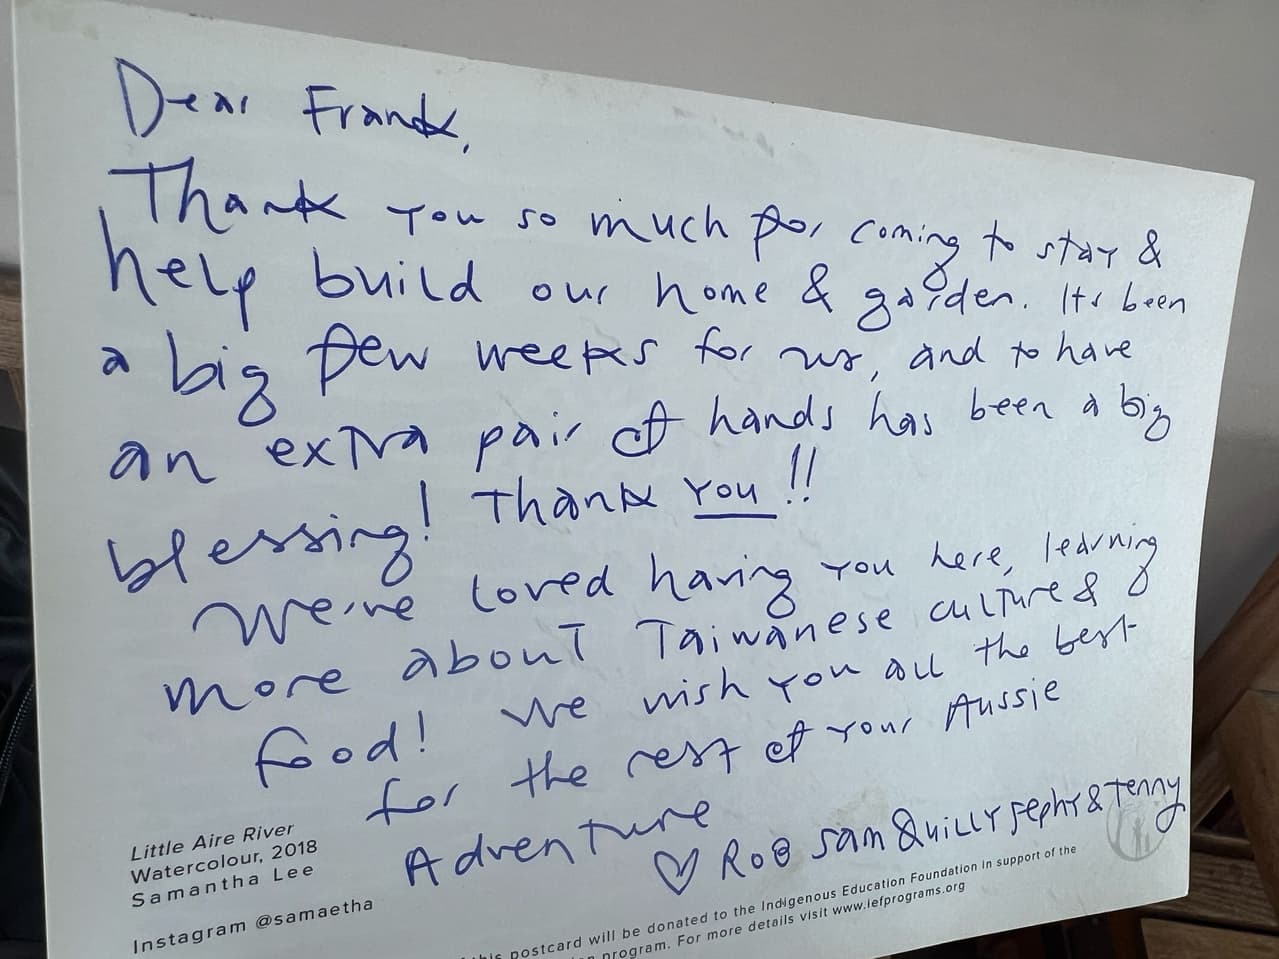 Dear Frank,
Thank you so much for coming to stay &
help build our home & garden. Its been
a big few weeks for us, and to have
an extra pair of hands has been a big
blessing! Thank YOU!!
We've loved having you here, learning
more about Taiwanese culture &
food! We wish you all the best
for the rest of your Aussie
Adventure
♡ Rob Sam Quilly Sephy & Tenny
Little Aire River
Watercolour, 2018
Samantha Lee
Instagram @samaetha
this postcard will be donated to the Indigenous Education Foundation in support of the
program. For more details visit www.iefprograms.org